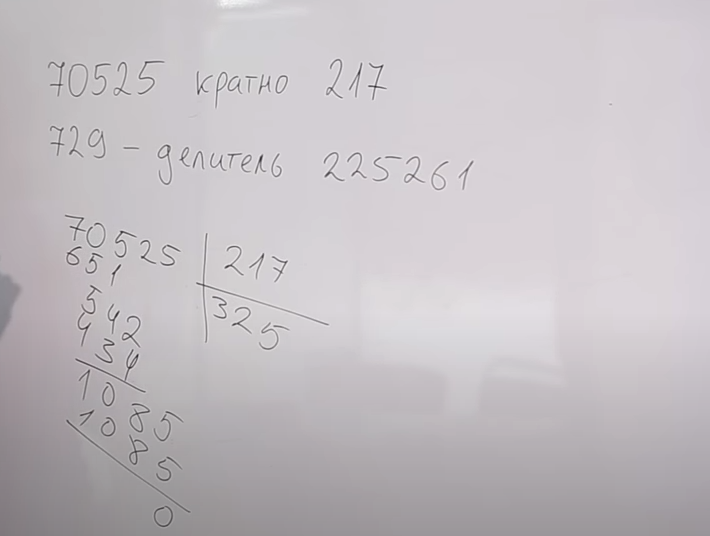 70525 кратно 217
729 – делитель 225261
70525 217
651 325
542
434
1085
1085
0